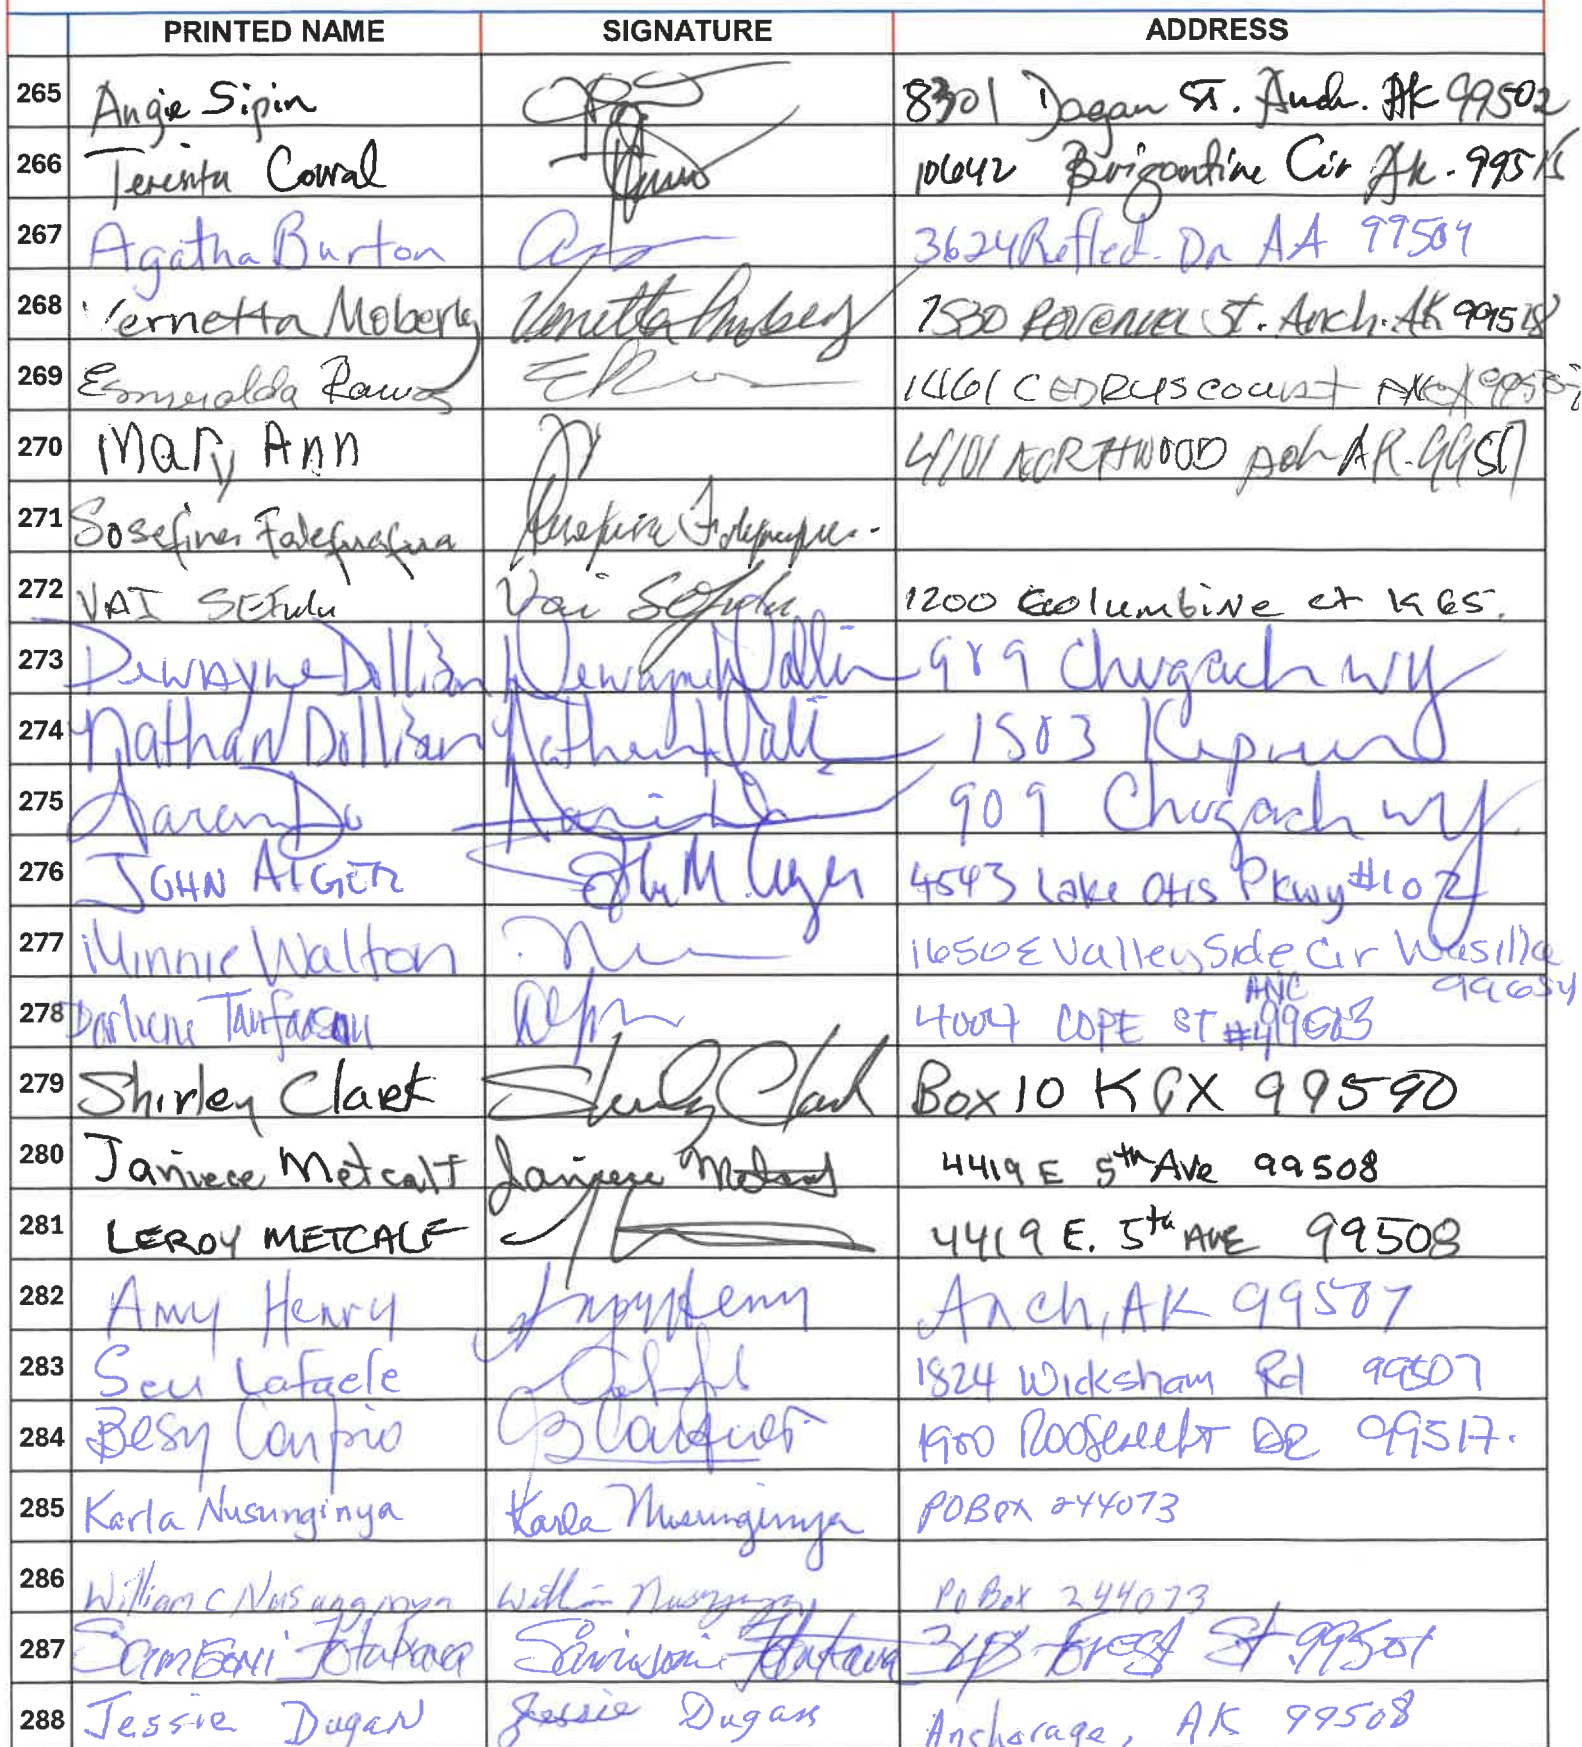 PRINTED NAME SIGNATURE ADDRESS
265 Angie Sipin 8301 St. Anch. AK 99502
266 Corral 10642 Brigantine Cir Ak. 99515
267 Agatha Burton 3624 Reflec. Dr AA 99504
268 Vernetta Moberly Vernetta Moberly 7530 St. Anch. AK 99518
269 Esmeralda 1461 CEDRUS court
270 Mary Ann 4101 NORTHWOOD AK. 99517
271 Sosefina Falefuafua
272 VAI SEFulu Vai Sefulu 1200 Columbine ct K65.
273 Dewayne Dollison Dewayne 909 Chugach wy
274 Nathan Dollison Nathan 1503
275 909 Chugach wy
276 JOHN ALGER John M Alger 4543 Lake Otis Pkwy #102
277 Minnie Walton 1650 E Valley Side Cir Wasilla
99654
278 Darlene 4007 COPE ST ANC
279 Shirley Clark Shirley Clark Box 10 KGX 99590
280 Janiece Metcalf Janiece Metcalf 4419 E 5th Ave 99508
281 LEROY METCALF 4419 E. 5th AVE 99508
282 Amy Henry Amy Henry Anch, AK 99507
283 Seu Lafaele 1824 Wicksham Rd 99507
284 Besy Carpio 1900 DR 99517.
285 Karla Nusunginya Karla Nusunginya POBox 244073
286 William C Nusunginya William Nusunginya Po Box 244073
287 Samisoni Fotukava Samisoni Fotukava St 99501
288 Jessie Dugan Jessie Dugan Anchorage, AK 99508